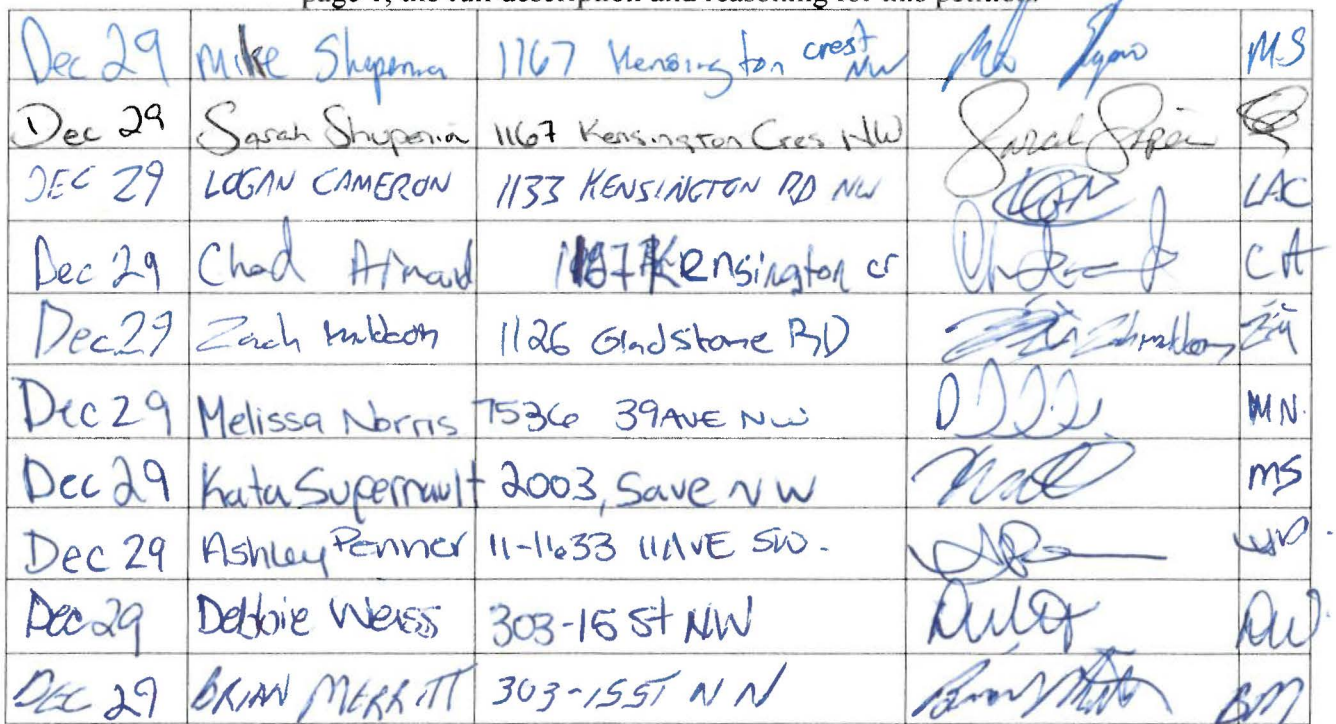 page 1, the full description and reasoning for this petition.
Dec 29 Mike Shupenia 1167 Kensington crest NW M.S
Dec 29 Sarah Shupenia 1167 Kensington Cres NW
DEC 29 LOGAN CAMERON 1133 KENSINGTON RD NW LAC
Dec 29 Chad Kensington cr CA
Dec 29 Zach 1126 Gladstone RD
Dec 29 Melissa Norris 7536 39AVE NW MN.
Dec 29 Kata Supernault 2003, 5ave NW MS
Dec 29 Ashley Penner 11-1633 11AVE SW.
Dec 29 Debbie Weiss 303-15 St NW DW.
DEC 29 BRIAN MERRITT 303-15ST N N BM